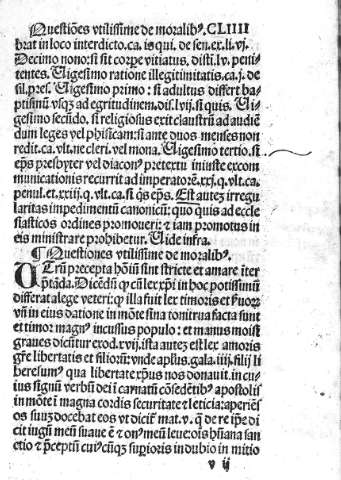 Questiões vtilissime de moralibꝰ. CLIIII
brat in loco interdicto.ca.is qui. de sen.ex.li.vj.
Decimo nono: si sit corpe vitiatus. disti.lv. peni-
tentes. Uigesimo ratione illegitimitatis.ca.j. de
fil.pres. Uigesimo primo: si adultus differt ba-
ptismũ vsqꝫ ad egritudinem. dis.lvij.si quis. Ui-
gesimo secũdo. si religiosus exit claustrũ ad audiẽ
dum leges vel phisicam: si ante duos menses non
redit.ca.vlt.ne cleri. vel mona. Uigesimo tertio. si
ep̃s presbyter vel diaconꝰ pretextu iniuste excom
municationis recurrit ad imperatorẽ.xxj.q.vlt.ca.
penul.et.xxiij.q.vlt.ca.si q̃s ep̃s. Est autez irregu
laritas impedimentũ canonicũ: quo quis ad eccle
siasticos ordines promoueri: ⁊ iam promotus in
eis ministrare prohibetur. Uide infra.
¶ Questiones vtilissime de moralibꝰ.
UTrũ precepta hoĩm sint stricte et amare iter
p̃tãda. Dicẽdũ ꝙ cũ lex xp̃i in hoc potissimũ
differat a lege veteri: ꝙ illa fuit lex timoris et
vñ in eius datione in mõte sina tonitrua facta sunt
et timor magnꝰ incussus populo: et manus moisi
graues dicũtur exod.xvij.ista autez est lex amoris
gr̃e libertatis et filiorũ: vnde apl̃us.gala.iiij.filij li
beresumꝰ qua libertate xp̃us nos donauit. in cu-
ius signũ verbũ dei ĩcarnatũ cõsedẽtibꝰ apostolis
in mõte ĩ magna cordis securitate ⁊ leticia: aperiẽs
os suuz docebat eos vt dicit̃ mat.v.
cit iugũ meũ suaue ẽ ⁊ onꝰ meũ leue: ois hũana san
ctio ⁊ p̃ceptũ cuiꝰcũqꝫ supioris in dubio in mitio
v ij